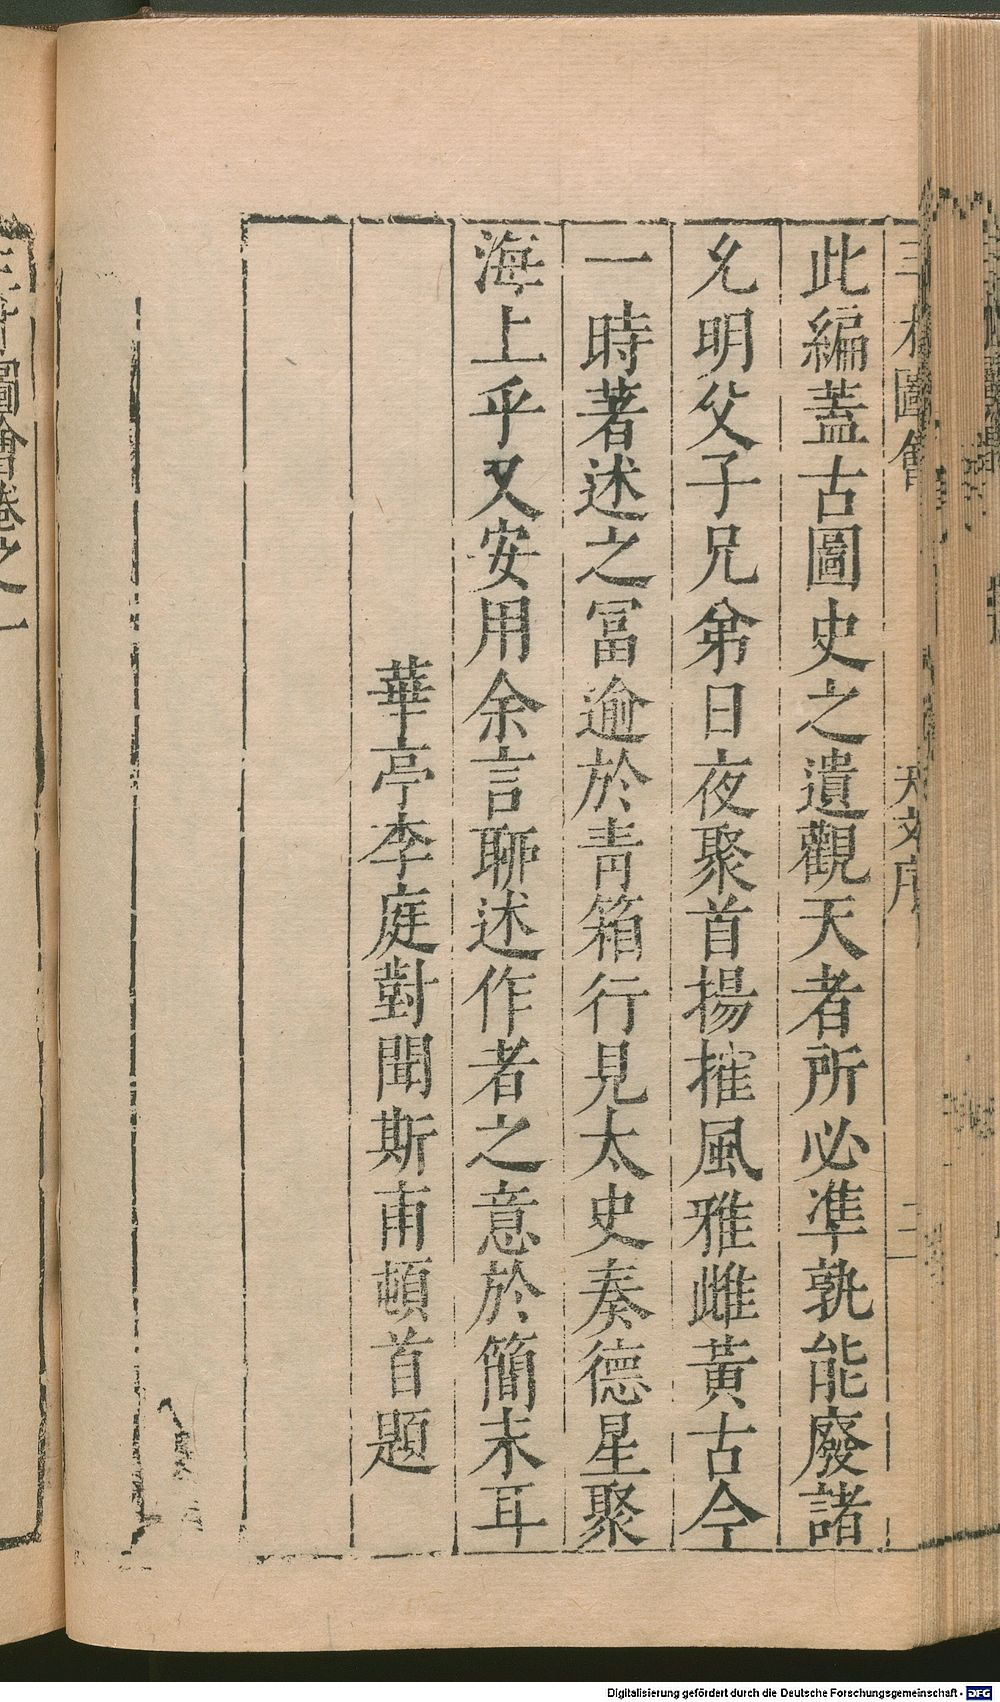 三才圖會 天文序 二
此編蓋古圖史之遺觀天者所必準孰能廢諸
允明父子兄弟日夜聚首揚搉風雅雌黃古今
一時著述之冨逾於青箱行見太史奏德星聚
海上乎又安用余言聊述作者之意於簡末耳
華亭李庭對聞斯甫頓首題
圖會卷之一
Digitalisierung gefördert durch die Deutsche Forschungsgemeinschaft - DFG